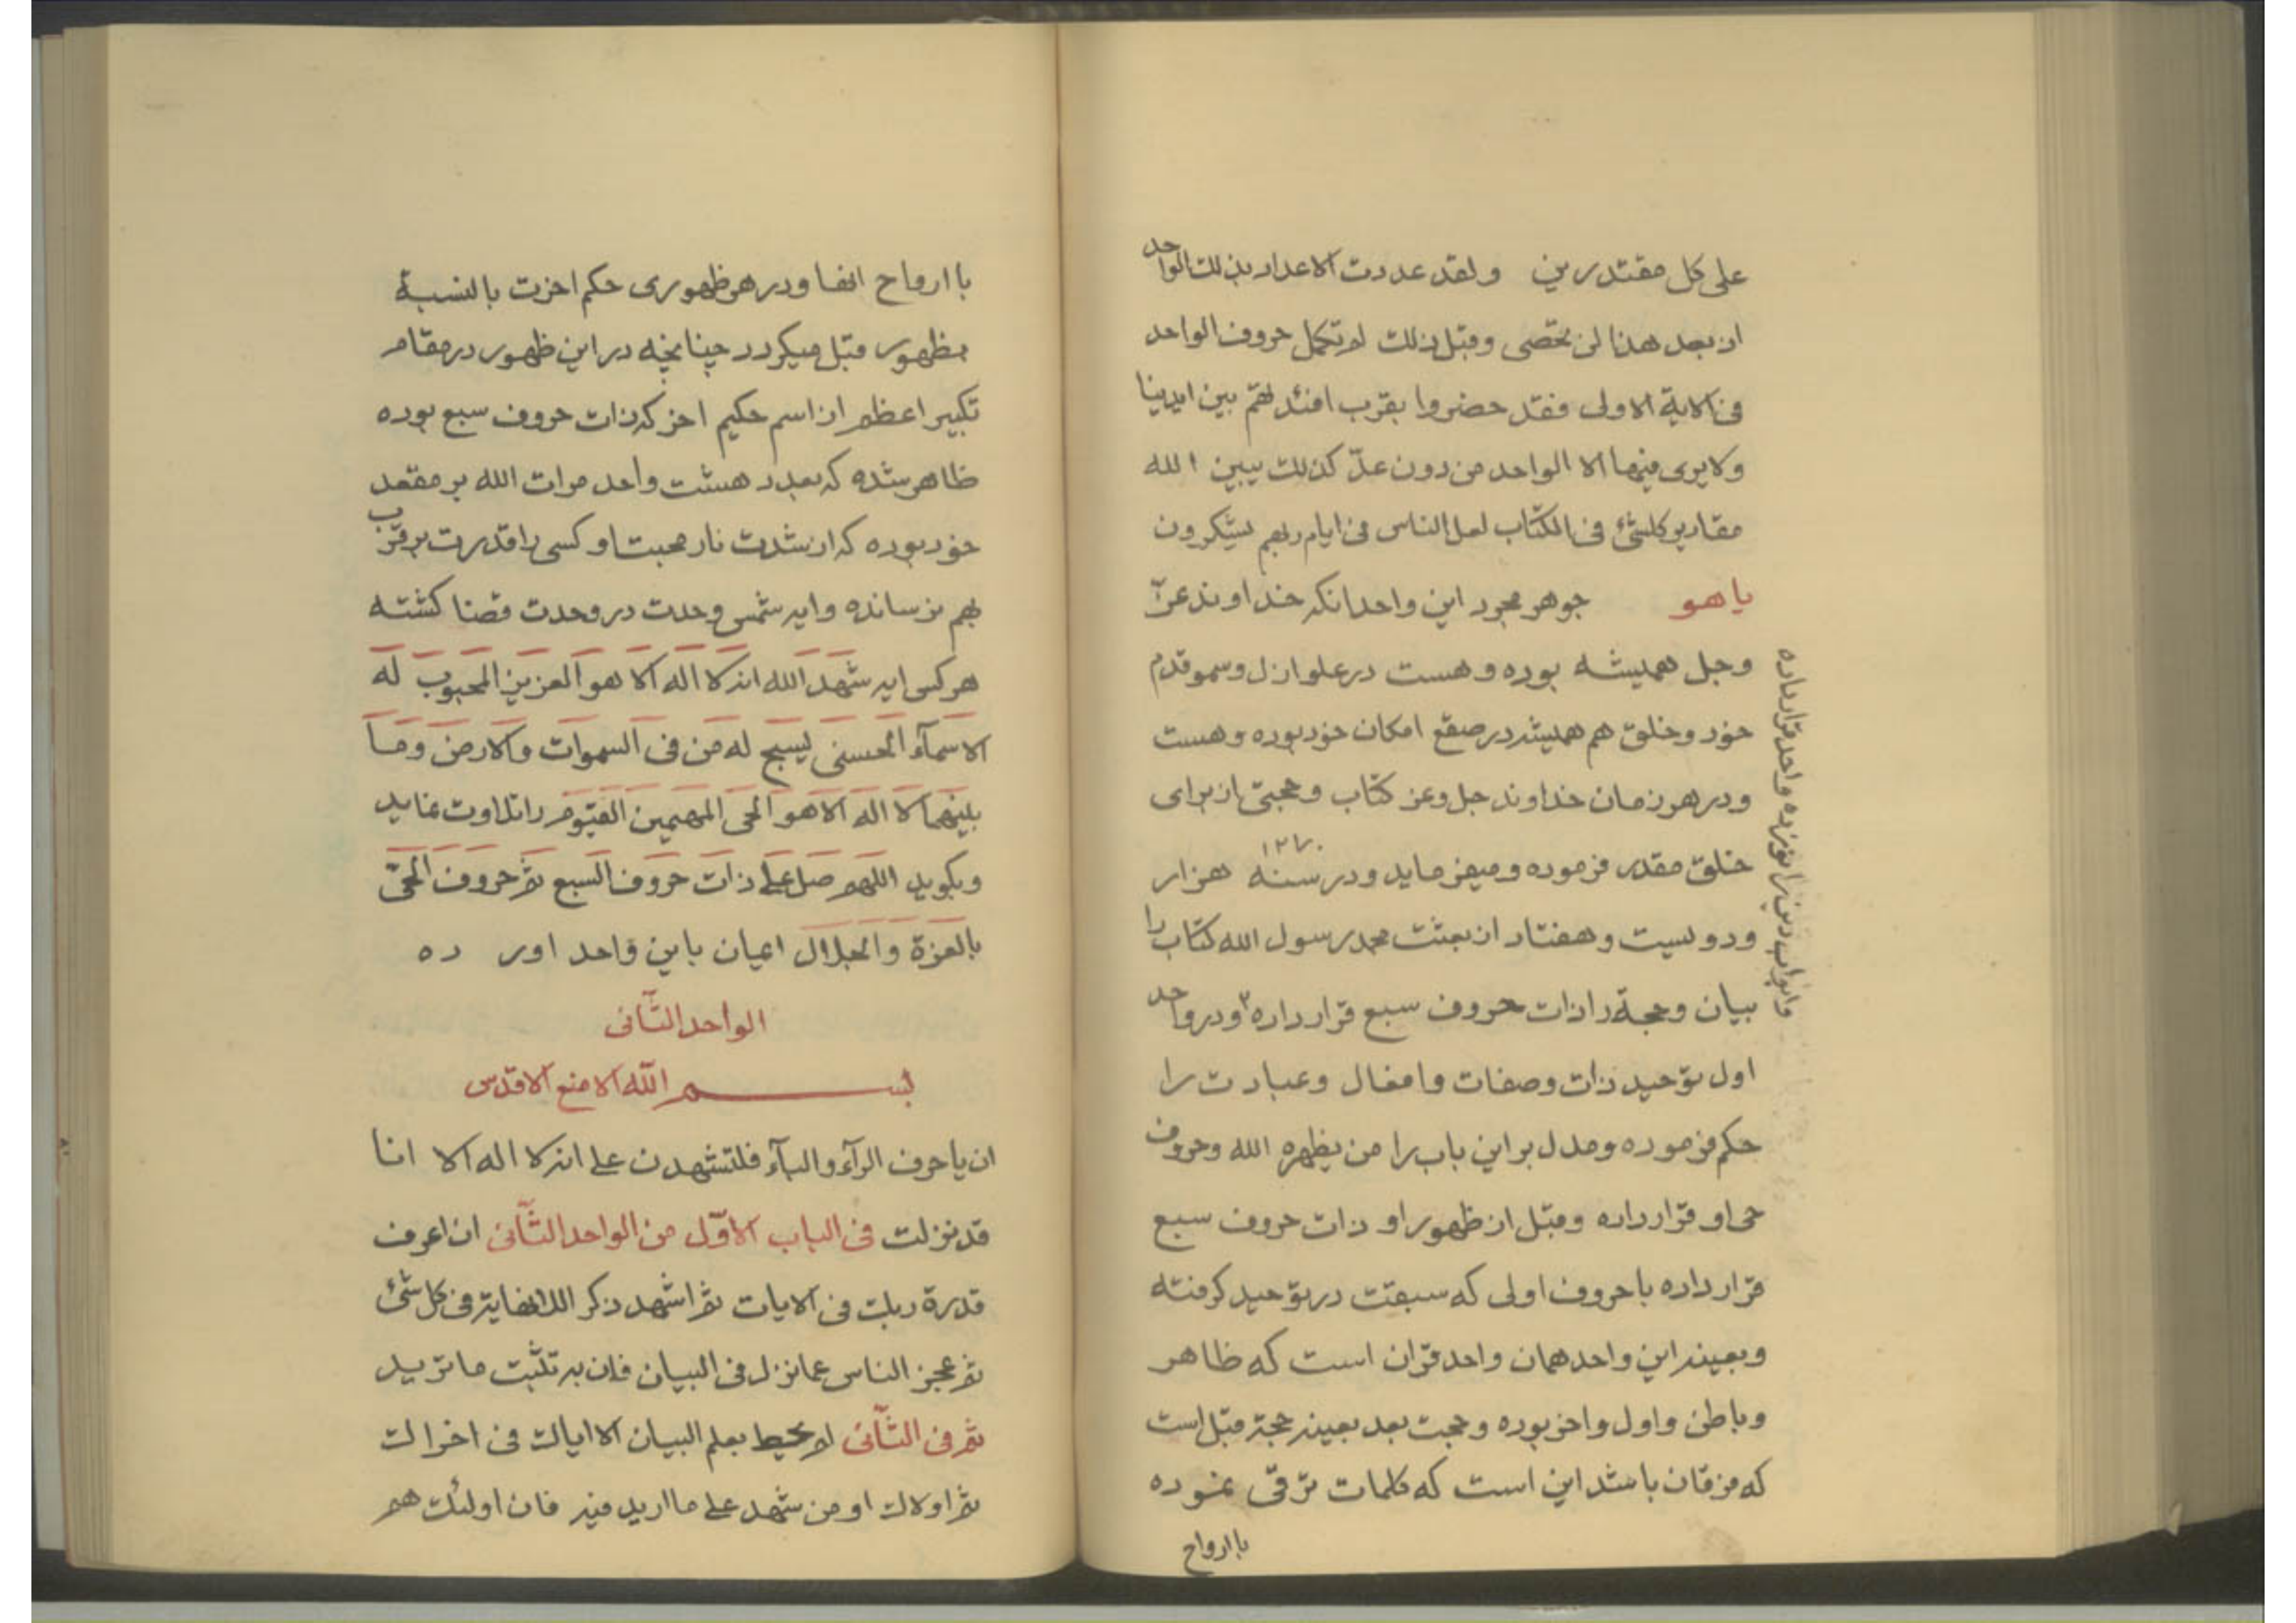 علی کل مقتدرین ولقد عددت الاعداد بذلك الواحد
اذ بعد هذا لن یحصی وقبل ذلك لم تکمل حروف الواحد
فی الایة الاولی فقد حضروا بقرب افئدتهم بین ایدینا
ولایری فیها الا الواحد من دون عدّ کذلك یبین الله
مقادیر کلشئ فی الکتاب لعل الناس فی ایام ربهم یشکرون
یا هو جوهر مجرد این واحد انکه خداوند عزّ
وجل همیشه بوده و هست در علو ازل وسمو قدم
خود و خلق هم همیشه در صقع امکان خود بوده و هست
و در هر زمان خداوند جل وعز کتاب و حجتی از برای
خلق مقدر فرموده و میفرماید و در سنه هزار
۱۲۷۰
و دویست و هفتاد از بعثت محمد رسول الله کتاب را
بیان و حجة را ذات حروف سبع قرار داده ۳ و در واحد
و ابواب دین را نوزده واحد قرار داده
اول توحید ذات وصفات وافعال وعبادت را
حکم فرموده و مدل بر این باب را من یظهره الله وحروف
حی او قرار داده وقبل از ظهور او ذات حروف سبع
قرار داده با حروف اولی که سبقت در توحید گرفته
وبعینه این واحد همان واحد قران است که ظاهر
وباطن واول واخر بوده وحجت بعد بعینه حجة قبل است
که فرقان باشد این است که کلمات ترقی نموده
با ارواح
با ارواح انها و در هر ظهوری حکم اخرت بالنسبة
بظهور قبل میکردد چنانچه در این ظهور در مقام
تکبیر اعظم از اسم حکیم اخر که ذات حروف سبع بوده
ظاهر شده که بعدد هشت واحد مرات الله بر مقعد
خود بوده که از شدت نار محبت او کسی را قدرت بر قرب
بهم نرسانده وایه شمس وحدت در وحدت قضا کشته
هر کس ایه شهد الله انه لا اله الا هو العزیز المحبوب له
الاسمآء الحسنی یسبح له من فی السموات والارض وما
بینهما لا اله الا هو الحی المهیمن القیوم را تلاوت نماید
وبکوید اللهم صل علی ذات حروف السبع ثم حروف الحیّ
بالعزة والجلال ایمان باین واحد اور ده
الواحد الثّانی
بسم الله الامنع الاقدس
ان یا حرف الرآء والبآء فلتشهدن علی انه لا اله الا انا
قد نزلت فی الباب الاوّل من الواحد الثّانی ان اعرف
قدرة ربك فی الایات ثم اشهد ذکر اللانهایة فی کل شئ
ثم عجز الناس عما نزل فی البیان فان به تثبت ما ترید
ثم فی الثّانی لم یحیط بعلم البیان الا ایاك فی اخراك
ثم اولاك او من شهد علی ما ارید فیه فان اولئك هم